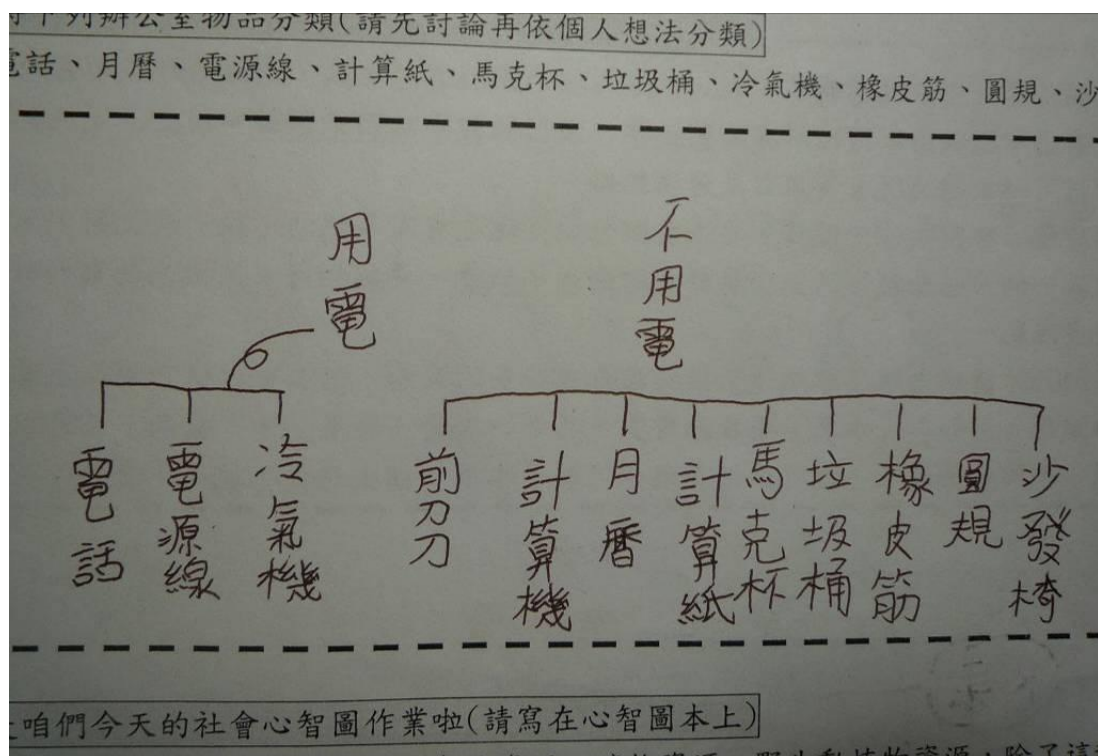 下列辦公室物品分類(請先討論再依個人想法分類)
電話、月曆、電源線、計算紙、馬克杯、垃圾桶、冷氣機、橡皮筋、圓規、沙
用電
不用電
電話
電源線
冷氣機
前刀刀
計算機
月曆
計算紙
馬克杯
垃圾桶
橡皮筋
圓規
沙發椅
咱們今天的社會心智圖作業啦(請寫在心智圖本上)